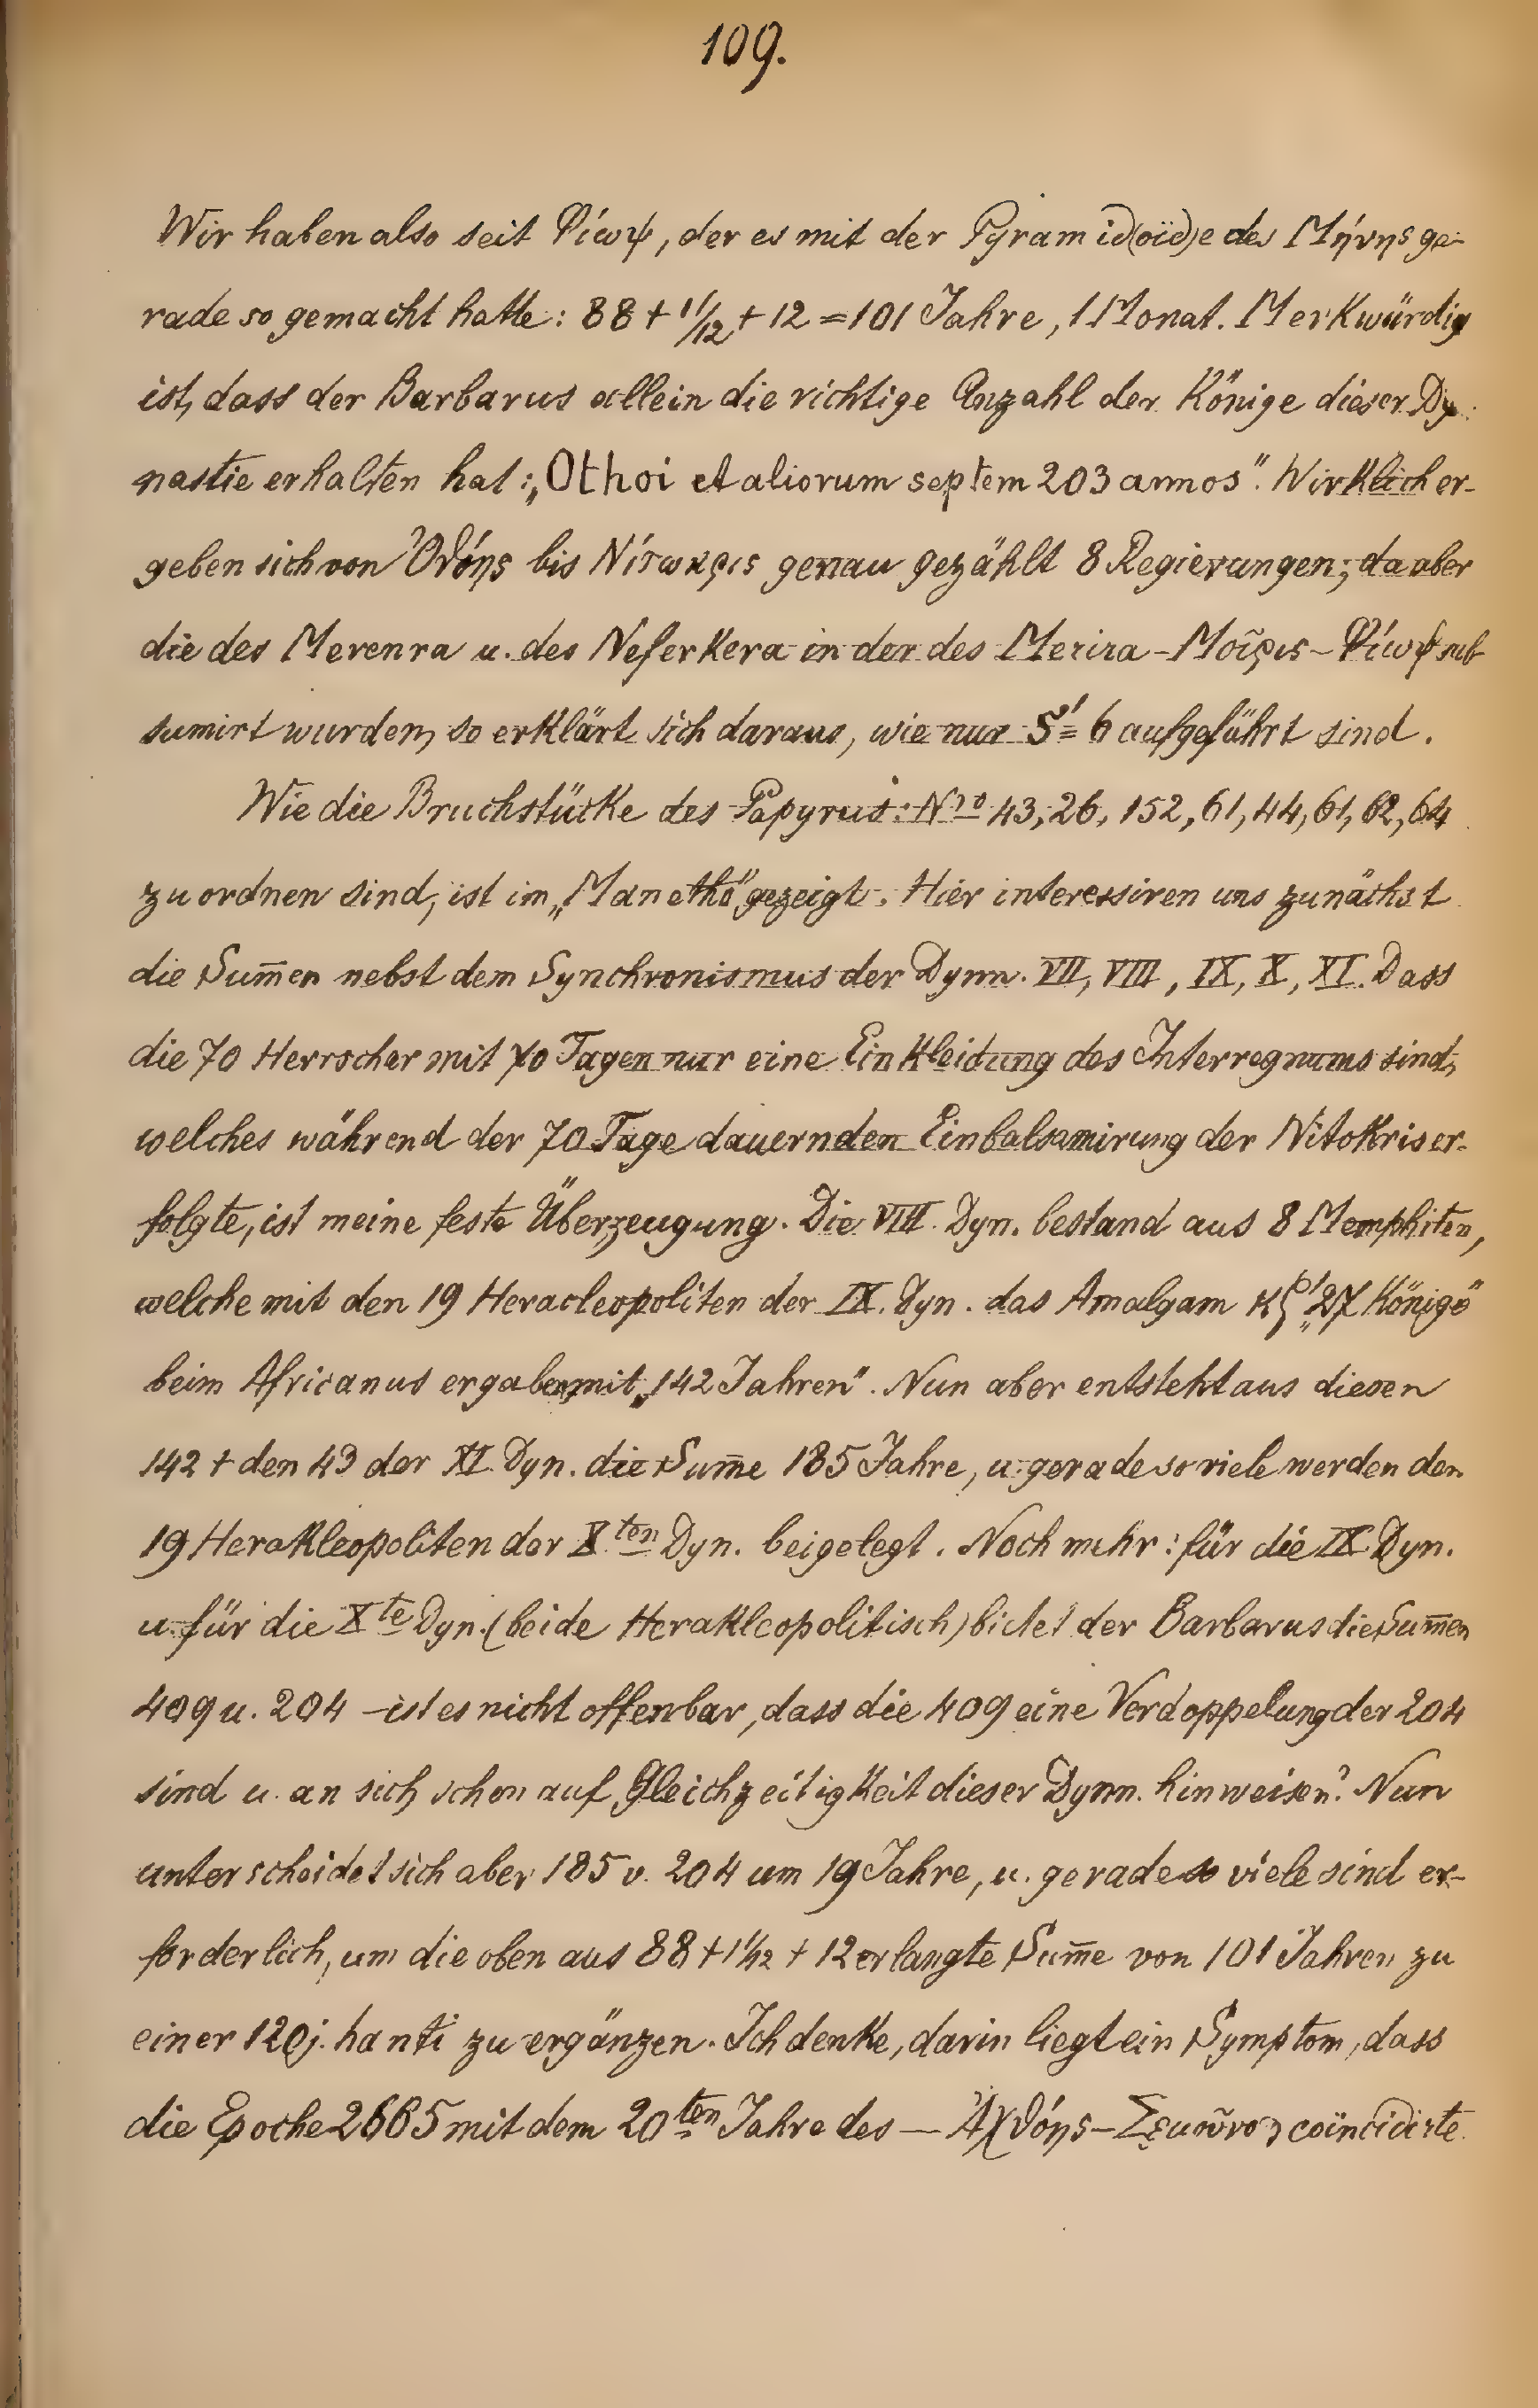 109.
Wir haben also seit Φίωψ, der es mit der Pyramid(oïd)e des Μήνης ge-
rade so gemacht hatte: 88 + 1 1/12 + 12 = 101 Jahre, 1 Monat. Merkwürdig
ist, dass der Barbarus allein die richtige Anzahl der Könige dieser Dy-
nastie erhalten hat: „Othoi et aliorum septem 203 annos". Wirklich er-
geben sich von Ὀθόης bis Νίτωκρις genau gezählt 8 Regierungen; da aber
die des Merenra u. des Neferkera in der des Merira-Μοῖρις-Φίωψ sub-
sumirt wurden, so erklärt sich daraus, wie nur ς' = 6 aufgeführt sind.
Wie die Bruchstücke des Papyrus: Nro 43, 26, 152, 61, 44, 61, 62, 64
zu ordnen sind, ist im „Manetho" gezeigt. Hier interessiren uns zunächst
die Sum̄en nebst dem Synchronismus der Dynn. VII, VIII, IX, X, XI. Dass
die 70 Herrscher mit 70 Tagen nur eine Einkleidung des Interregnums sind,
welches während der 70 Tage dauernden Einbalsamirung der Nitokris er-
folgte, ist meine feste Überzeugung. Die VIII. Dyn. bestand aus 8 Memphiten,
welche mit den 19 Heracleopoliten der IX. Dyn. das Amalgam κζ' „27 Könige"
beim Africanus ergaben, mit „142 Jahren". Nun aber entsteht aus diesen
142 + den 43 der XI. Dyn. die Sum̄e 185 Jahre, u. gerade so viele werden den
19 Herakleopoliten der X.ten Dyn. beigelegt. Noch mehr: für die IX Dyn.
u. für die Xte Dyn. (beide Herakleopolitisch) bietet der Barbarus die Sum̄en
409 u. 204 – ist es nicht offenbar, dass die 409 eine Verdoppelung der 204
sind u. an sich schon auf Gleichzeitigkeit dieser Dynn. hinweisen? Nun
unterscheidet sich aber 185 v. 204 um 19 Jahre, u. gerade so viele sind er-
forderlich, um die oben aus 88 + 1 1/12 + 12 erlangte Sum̄e von 101 Jahren zu
einer 120j. hanti zu ergänzen. Ich denke, darin liegt ein Symptom, dass
die Epoche 2665 mit dem 20ten Jahre des — Ἀχθόης- coïncidirte.